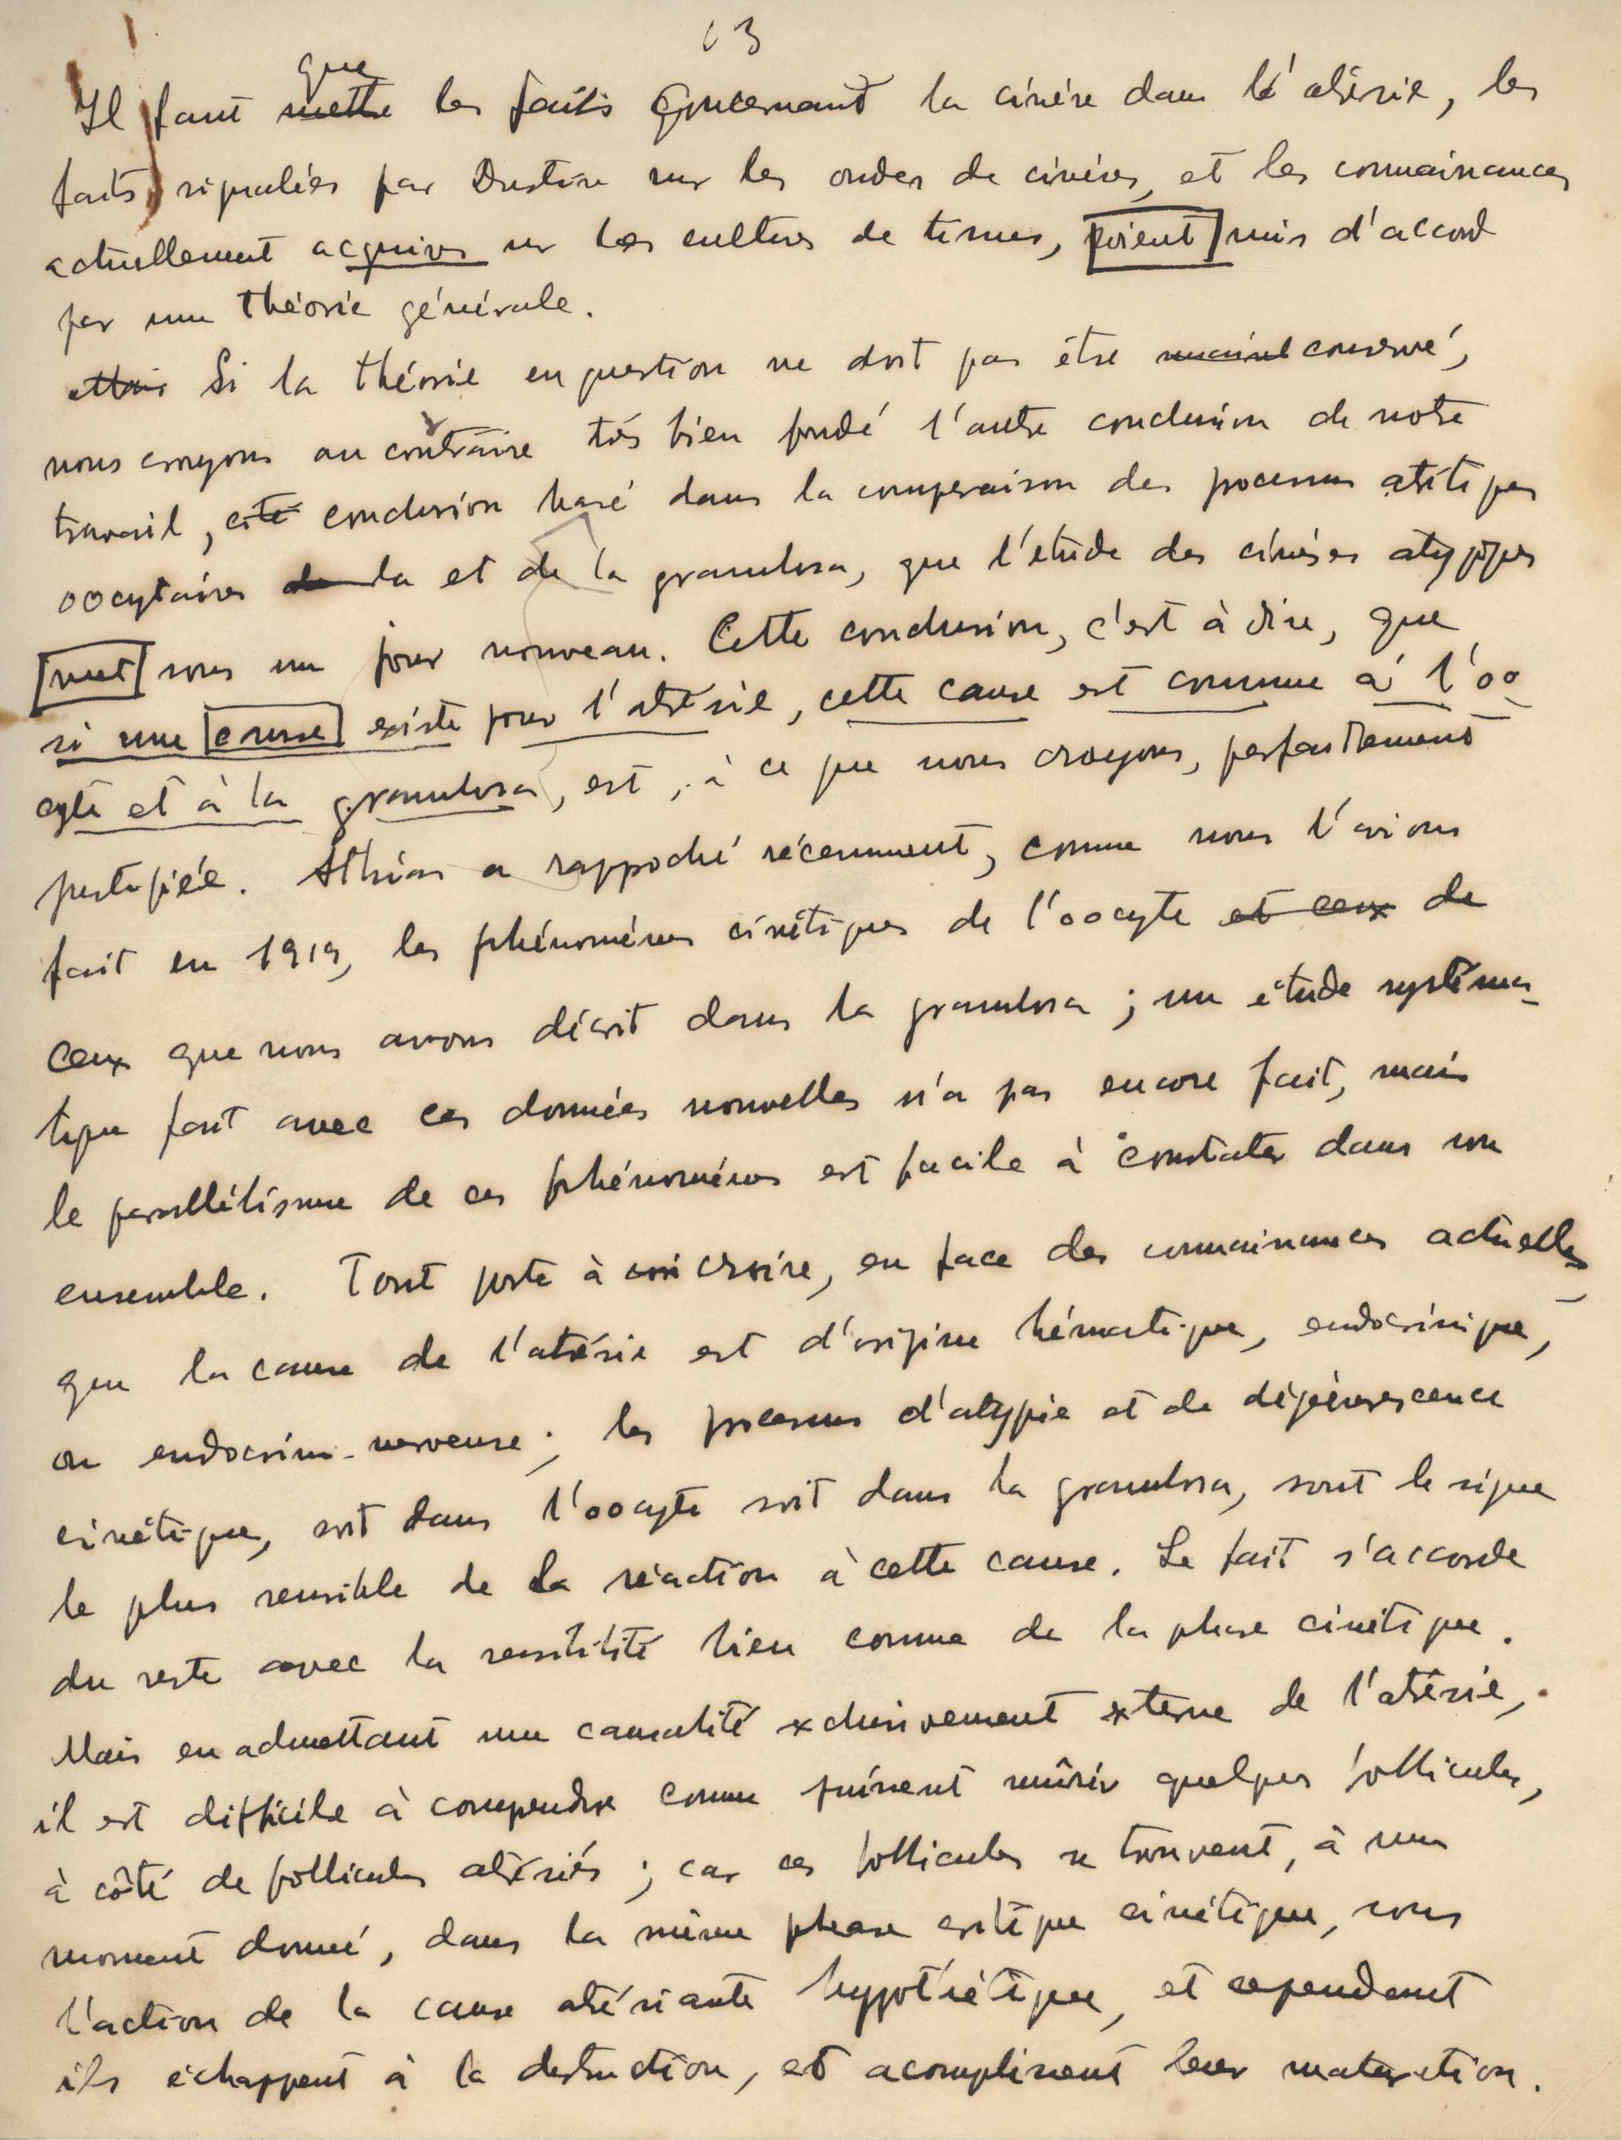 13
que
Il faut mettre les faits concernant la cinèse dans l'atrésie, les
faits signalées par Dustin sur les ondes de cinèses, et les connaissances
actuellement acquises sur les cultures de tissus, soient mis d'accord
par une théorie générale.
Si la théorie en question ne doit pas être conservé,
nous croyons au contraire très bien fondé l'autre conclusion de notre
travail, cité conclusion basé dans la comparaison des processus
oocytaires de la et de la granulosa, que l'étude des cinèses atypiques
met sous un jour nouveau. Cette conclusion, c'est à dire, que
si une cause existe pour l'atrésie, cette cause est commune à l'oo
cyte et à la granulosa, est, à ce que nous croyons, parfaitement
justifiée. Athias a rapproché récemment, comme nous l'avions
fait en 1919, les phénomènes cinétiques de l'oocyte et ceux de
ceux que nous avons décrit dans la granulosa ; un étude systéma-
tique fait avec ces données nouvelles n'a pas encore fait, mais
le parallélisme de ces phénomènes est facile à constater dans son
ensemble. Tout porte à croire, en face des connaissances actuelles,
que la cause de l'atrésie est d'origine hématique, endocrinique,
ou endocrino-nerveuse ; les processus d'atypie et de dégénérescence
cinétique, soit dans l'oocyte soit dans la granulosa, sont le signe
le plus sensible de la réaction à cette cause. Le fait s'accorde
du reste avec la sensibilité bien connue de la phase cinétique.
Mais en admettant une causalité exclusivement externe de l'atrésie,
il est difficile à comprendre comme puissent mûrir quelques follicules,
à côté de follicules atrésiés ; car ces follicules se trouvent, à un
moment donné, dans la même phase critique cinétique, sous
l'action de la cause atrésiante hypothétique, et cependant
ils échappent à la destruction, et acomplissent leur maturation.